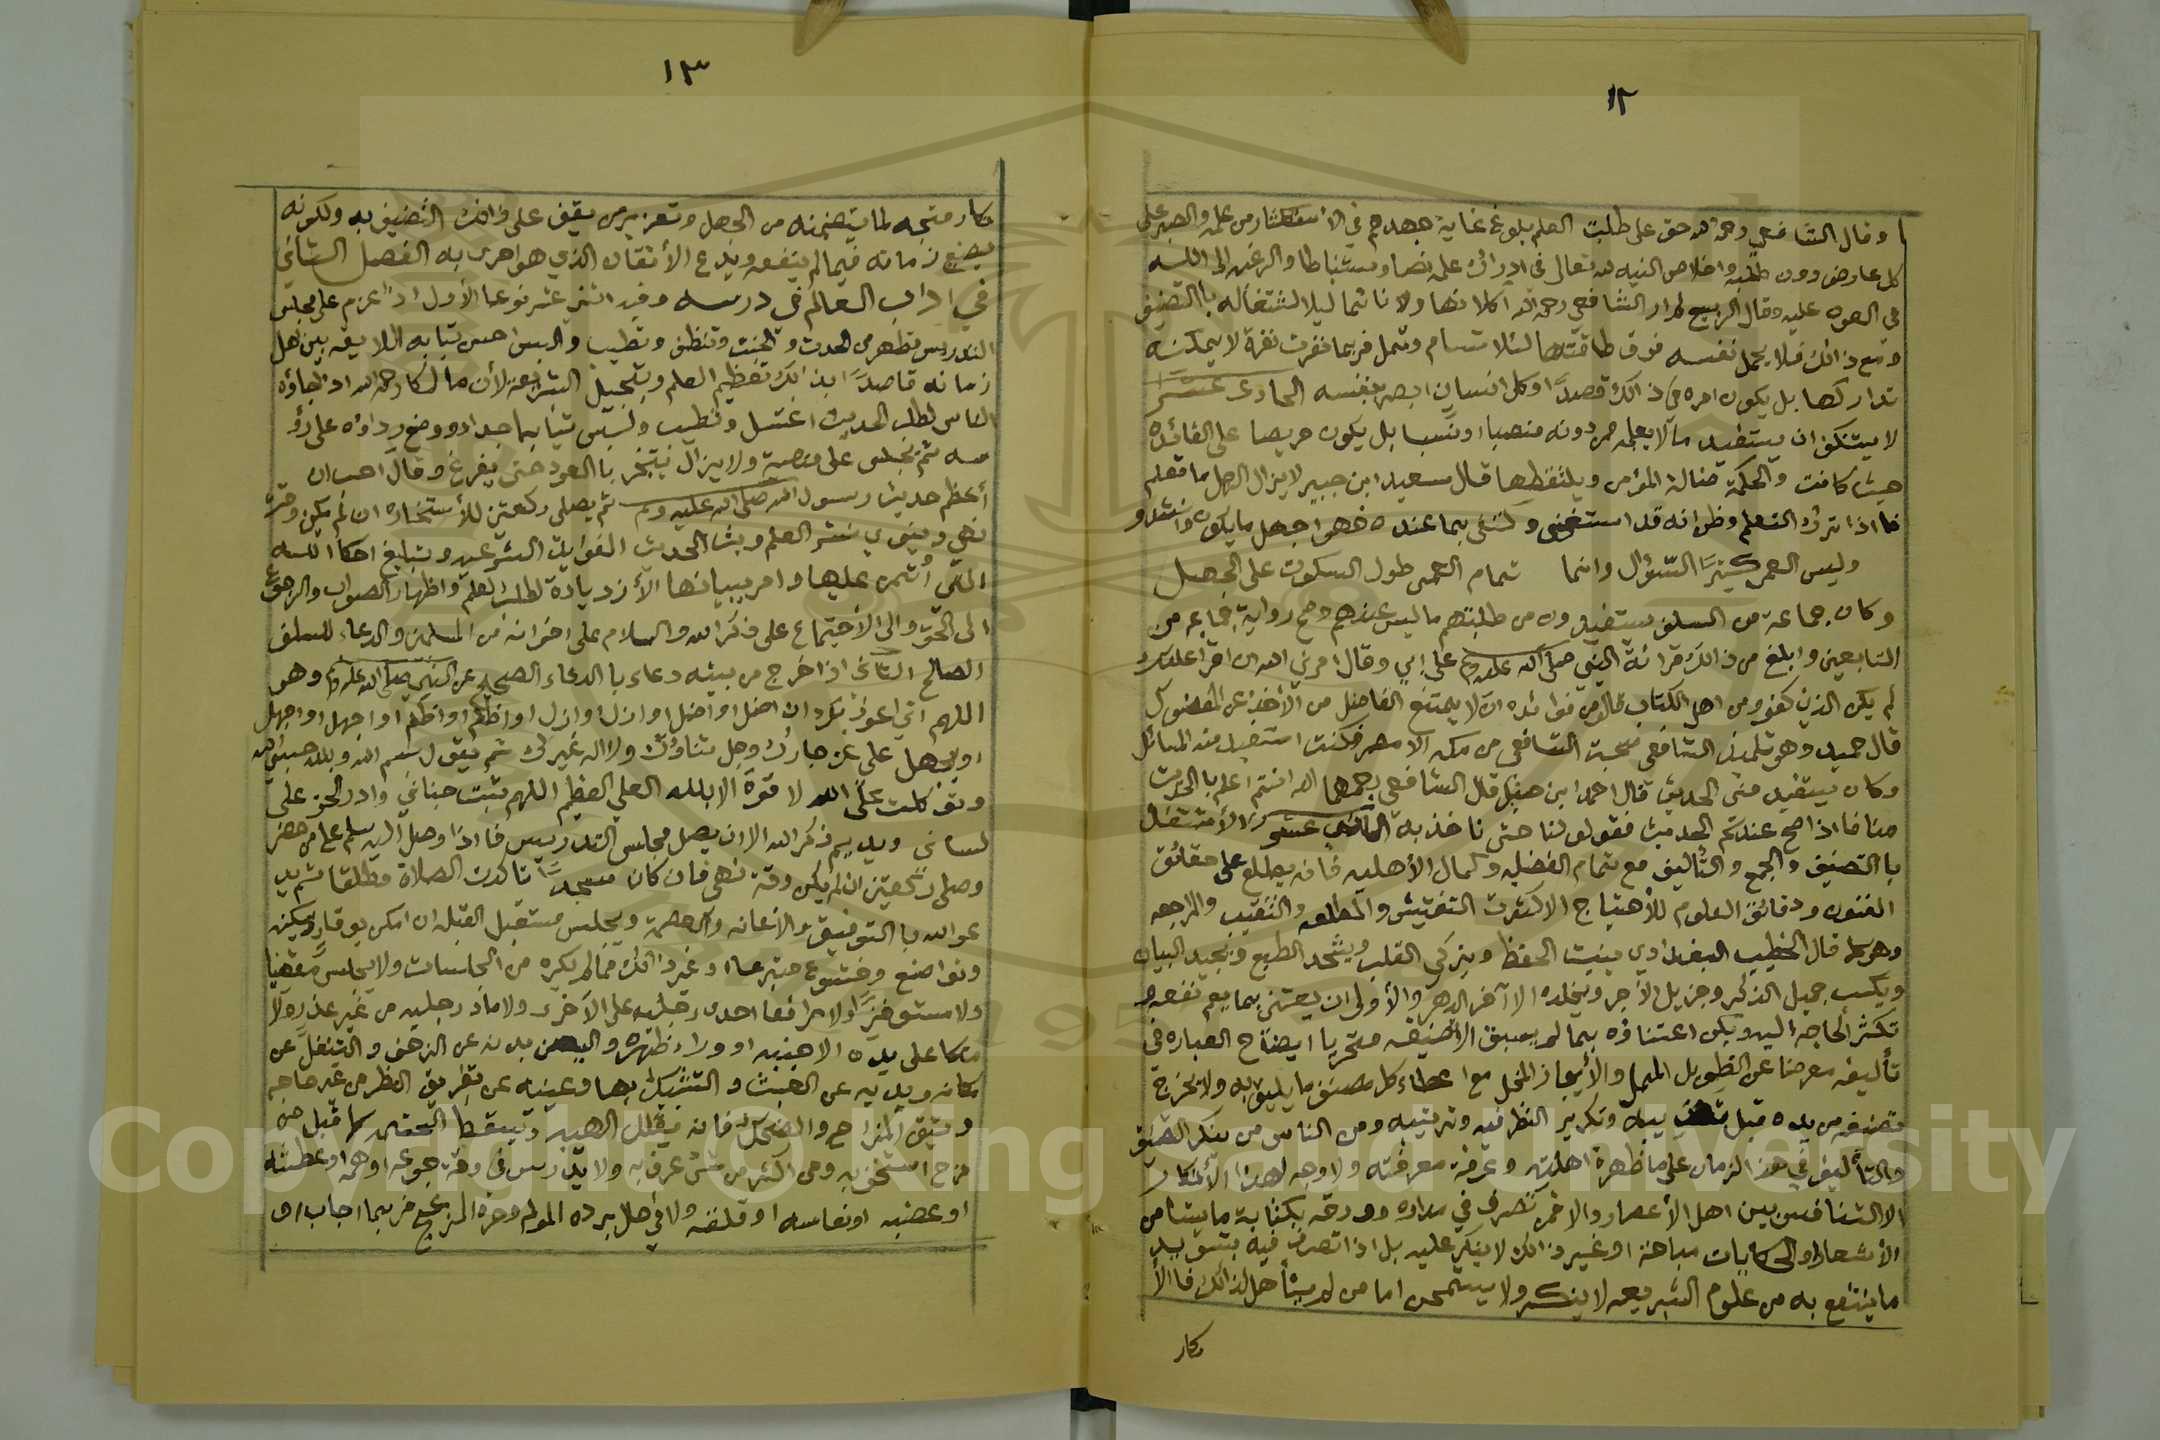 ١٢
وقال الشافعي رحمه الله حق على طلبت العلم بلوغ غاية جهدهم في الاستكثار من علمه والصبر على
كل عارض دون طلبه واخلاص النيه لله تعالى في ادراك علمه نصا واستنباطا والرغبه الى الله
في العون عليه وقال الربيع لم ار الشافعي رحمه الله اكلا نهارا ولا نائما ليلا لشتغاله باالتصنيف
ومع ذالك فلا يحمل نفسه فوق طاقتها لئلا تسام وتمل فربما نفرت نفرة لا يمكنه
تداركها بل يكون امره في ذالك قصدًا وكل انسان ابصر بنفسه الحادى عشر
لا يستنكف ان يستفيد مالا يعلمه ممن دونه منصبا او نسبا بل يكون حريصا على الفائده
حيث كانت والحكمة ضالة المؤمن ويلتقطها قال سعيد ابن جبير لا يزال الرجل ما تعلم
فاذا ترك التعلم وظن انه قد استغنى وكتفى بما عنده فهو اجهل ما يكون وانشدو
وليس العمى كثيرًا السؤال وانما تمام العمى طول السكوت على الجهل
وكان جماعة من السلف يستفيدون من طلبتهم ما ليس عندهم وصح رواية جماعه من
التابعين وابلغ من ذالك قرائة النبي صلى الله عليه وسلم على ابي وقال امرني الله ان اقرا عليك
لم يكن الذين كفرو من اهل الكتاب قالو من فوائده ان لا يمتنع الفاضل من الأخذ عن المفضول
قال حميد وهو تلميذ الشافعي صحبت الشافعي من مكه الا مصر فكنت استفيد منه المسائل
وكان يستفيد مني الحديث قال احمد ابن حنبل قال الشافعي رحمهما الله انتم اعلم باالحديث
منا فاذا صح عندكم الحديث فقولو لنا حتى ناخذ به الثاني عشر الأشتغال
باالتصنيف والجمع والتأليف مع تمام الفضيله وكمال الأهليه فانه يطلع على حقائق
الفنون ودقائق العلوم للأحتياج الا كثرت التفتيش والمطالعه والتنقيب والمراجعه
وهو كما قال الخطيب البغدادي يثبت الحفظ ويزكي القلب ويشحد الطبع ويجيد البيان
ويكسب جميل الذكر وجزيل الأجر ويخلده الا آخر الدهر والأولى ان يعتني بما يعم نفعه و
تكثر الحاجه اليه وليكن اعتناؤه بما لم يسبق الا تصنيفه متحريا ايضاح العباره في
تأليفه معرضا عن التطويل الممل والأيجاز المخل مع اعطاء كل مصنف ما يليق به ولا يخرج
تصنيفه من يده قبل تهذيبه وتكرير النظر فيه وترتيبه ومن الناس من ينكر التصنيف
والتأليف في هذا الزمان على من ظهرة اهليته وعرفة معرفته ولا وجه لهذا الأنكار
الا التنافس بين اهل الأعصار والا فمن تصرف في مداده وورقه بكتابة ما يشا من
الأشعار والحكايات مباحة او غير ذالك لا ينكر عليه بل اذا تصرف فيه بتسويد
ما ينتفع به من علوم الشريعه لا ينكر ولا يستهجن اما من لم يتأهل لذالك فالأ
نكار
١٣
نكار متجه لما يتضمنه من الجهل وتغرير من يقف على ذالك التصنيف به ولكونه
يضيع زمانه فيما لم ينفعه ويدع الأتقان الذي هو احرى به الفصل الثاني
في اداب العالم في درسه وفيه اثني عشر نوعا الأول اذا عزم على مجلس
التدريس تطهر من الحدث والخبث وتنظف وتطيب والبس احسن ثيابه اللايقه بين اهل
زمانه قاصدًا بذالك تعظيم العلم وتبجيل الشريعة لأن مالك رحمه الله اذا جاؤه
الناس لطلب الحديث اغتسل وتطيب ولبس ثيابا جدادو ووضع رداؤه على رؤ
سه ثم يجلس على منصة ولا يزال يتبخر باالعود حتى يفرغ وقال احب ان
أعظم حديث رسول الله صلى الله عليه وسلم ثم يصلي ركعتين للأستخاره ان لم يكن وقت
نهي وينوي نشر العلم وبث الحديث الفوايد الشرعيه وتبليغ احكام الله
التي أتمن عليها وامر ببيانها الأزديادة لطلب العلم واظهار الصواب والرجوع
الى الحق والى الأجتماع على ذكر الله والسلام على اخوانه من المسلمين والدعاء للسلف
الصالح الثاني اذا خرج من بيته دعاء باالدعاء الصحيح عن النبي صلى الله عليه وسلم وهو
اللهم اني اعوذ بك ان اضل او اضل او ازل او ازل او اظلم او اظلم او اجهل او اجهل
او يجهل علي عز جارك وجل ثناؤك ولا اله غيرك ثم يقول بسم الله وبالله حسبي الله
وتوكلت على الله لا قوة الا بالله العلي العظيم اللهم ثبت جناني وادر الحق على
لساني ويديم ذكر الله الا ان يصل مجلس التدريس فاذا وصل اليه سلم على من حضر
وصلى ركعتين ان لم يكن وقت نهي فان كان مسجدًا تاكدت الصلاة مطلقا ثم يد
عو الله باالتوفيق والاعانه والعصمة ويجلس مستقبل القبله ان امكن بوقار وسكينه
وتواضع وخشوع متربعا او غير ذالك مما لم يكره من الجلسات ولا يجلس مقعيا
ولا مستوفزًا ولا رافعا احدى رجليه على الآخرى ولا ماد رجليه من غير عذر ولا
متكا على يده الا جنبه او وراء ظهره وليصن بدنه عن الزحف والتنقل عن
مكانه ويديه عن العبث والتشبيك بها وعينيه عن تفريق النظر من غير حاجه
ويتيق المزاح والضحك فانه يقلل الهيبه ويسقط الحشمه كما قيل من
مزح استخف به ومن اكثر من شئ عرف به ولا يدرس في وقت جوعه او همه او عطشه
او غضبه او نعاسه او قلقه ولا في حال برده المولم وحره المزعج فربما اجاب او